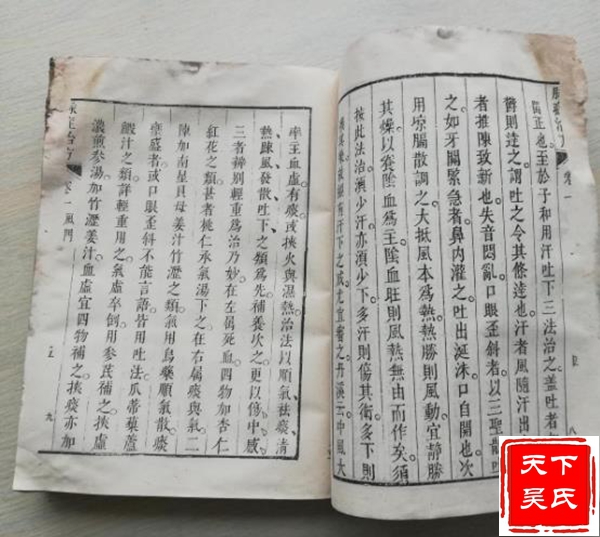 卷一
正也至於子和用汗吐下三法治之蓋吐者
欝則達之謂吐之令其條達也汗者風隨汗出
者推陳致新也失音悶亂口眼歪斜者以三聖散吐
之如牙關緊急者鼻內灌之吐出涎沫口自開也次
用涼膈散調之大抵風本為熱熱勝則風動宜静勝
其燥以養陰血為主陰血旺則風熱無由而作矣須
按此法治須少汗亦須少下多汗則傷其衛多下則
損其榮故經有汗下之戒尤宜審之丹溪云中風大
率主血虛有痰或挾火與濕熱治法以順氣祛痰清
熱踈風發散吐下之類為先補養次之更以傷中感
三者辨别輕重為治乃妙在左屬死血四物加杏仁
紅花之類甚者桃仁承氣湯下之在右屬痰與氣二
陳加南星貝母姜汁竹瀝之類氣用烏藥順氣散痰
壅盛者或口眼歪斜不能言語皆用吐法瓜蒂藜蘆
鰕汁之類詳輕重用之氣虛卒倒用參芪補之挾虛
濃煎參湯加竹瀝姜汁血虛宜四物補之挾痰亦加
卷一 風門 五 九
天下
吴氏